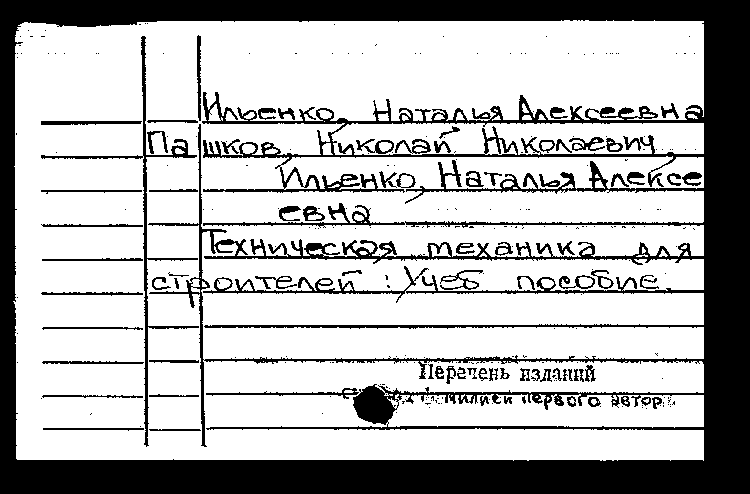 Ильенко, Наталья Алексеевна
Пашков, Николай Николаевич,
Ильенко, Наталья Алексе
евна
Техническая механика для
строителей : Учеб пособие.
Перечень изданий
милией первого автор